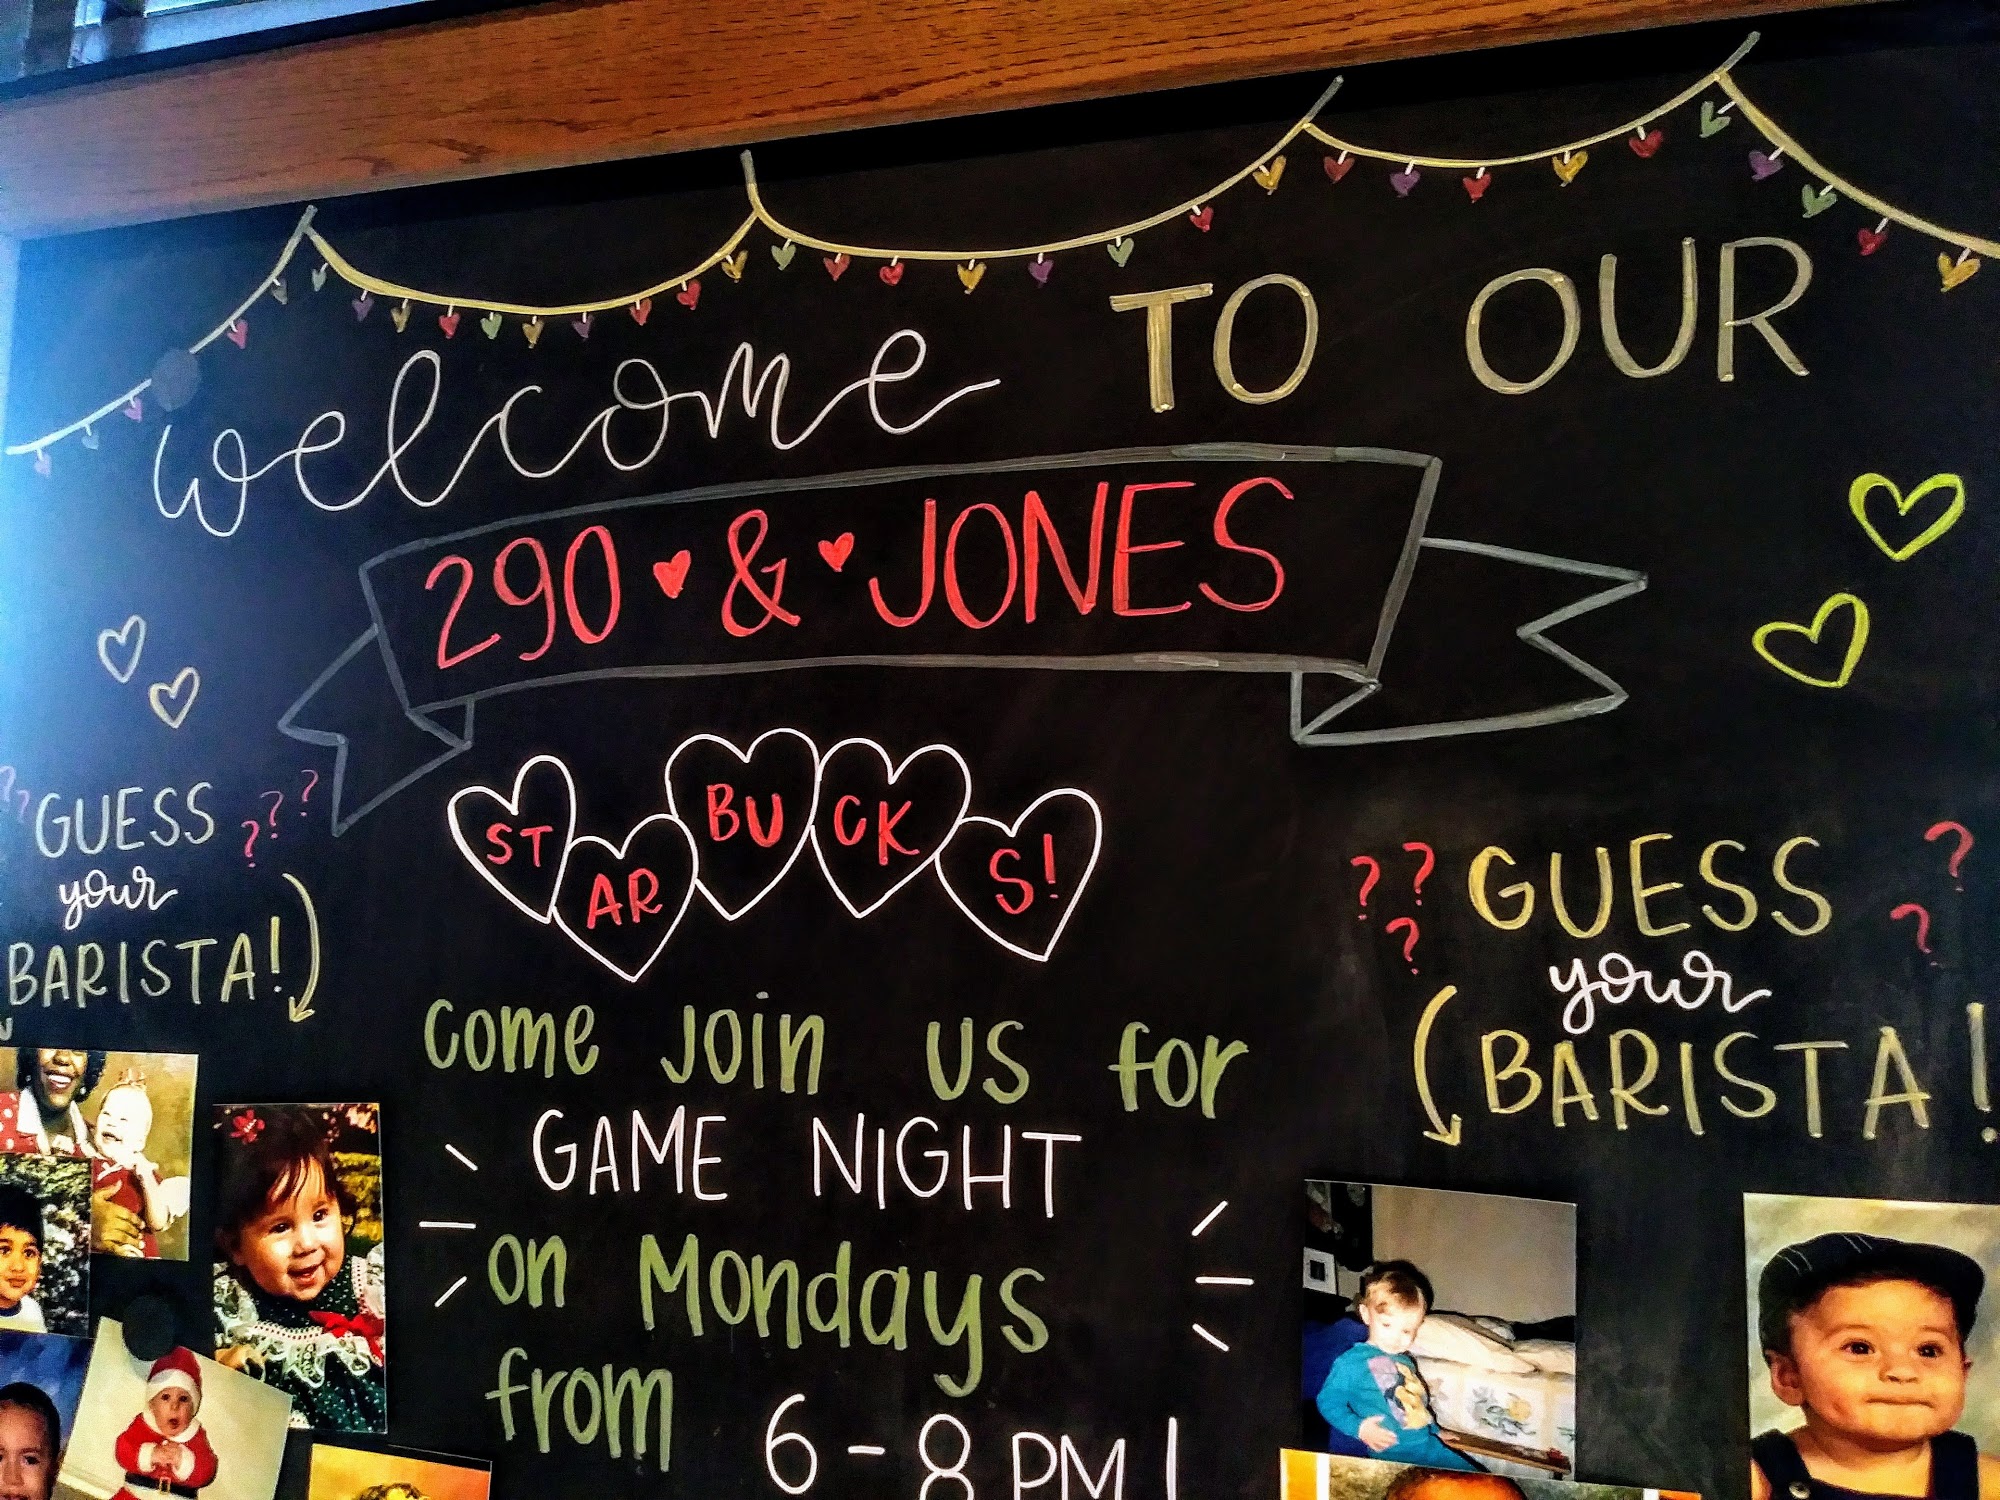 welcome TO OUR
290 & JONES
STARBUCKS!
? ? GUESS ? ? ?
your
BARISTA!
Come Join us for
GAME NIGHT
on Mondays
from 6-8 PM!
? ? ? GUESS ? ?
your
BARISTA!